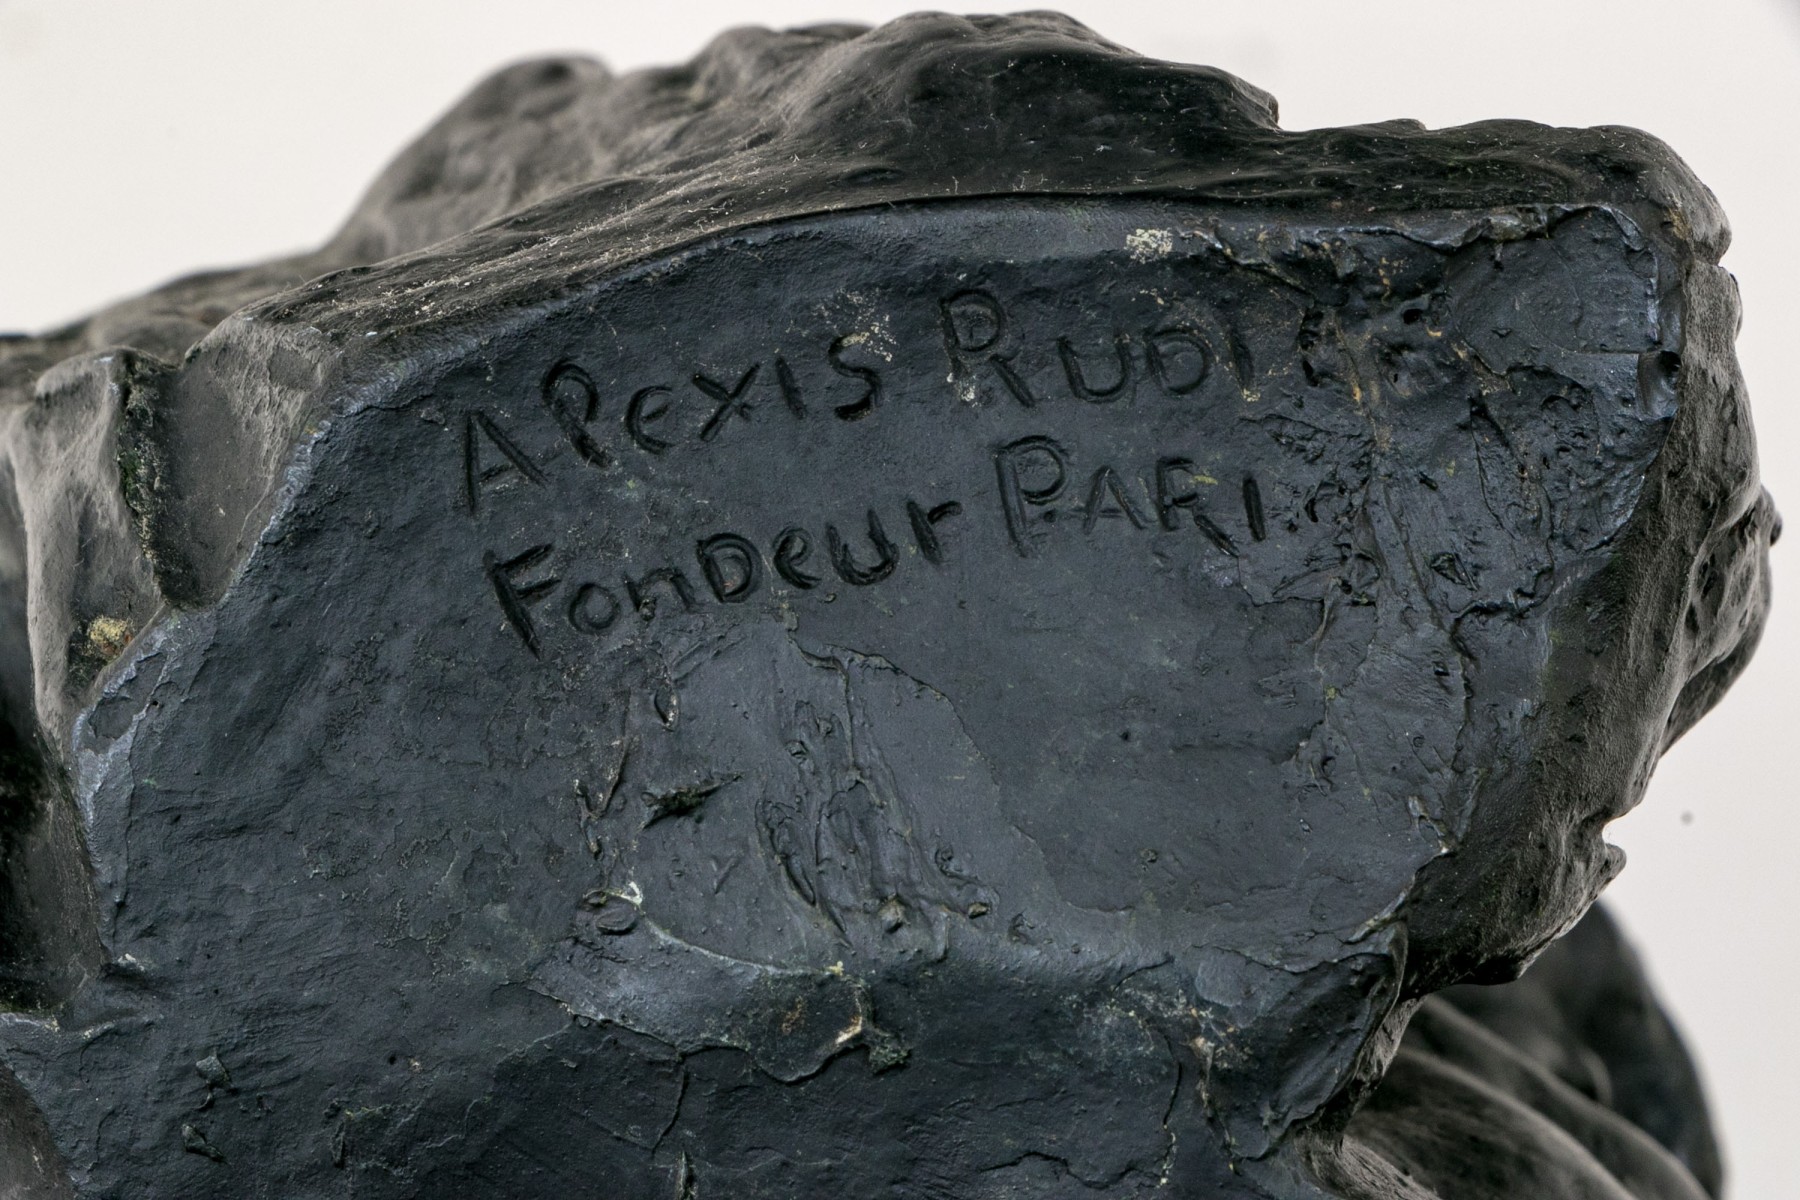 ALeXIS RUDI
FonDeur PARI